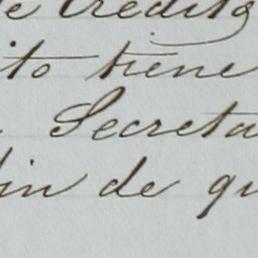 e Credito
ito tiene
Secreta
fin de qu